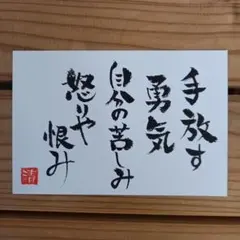 手放す
勇気
自分の苦しみ
怒りや
恨み
清